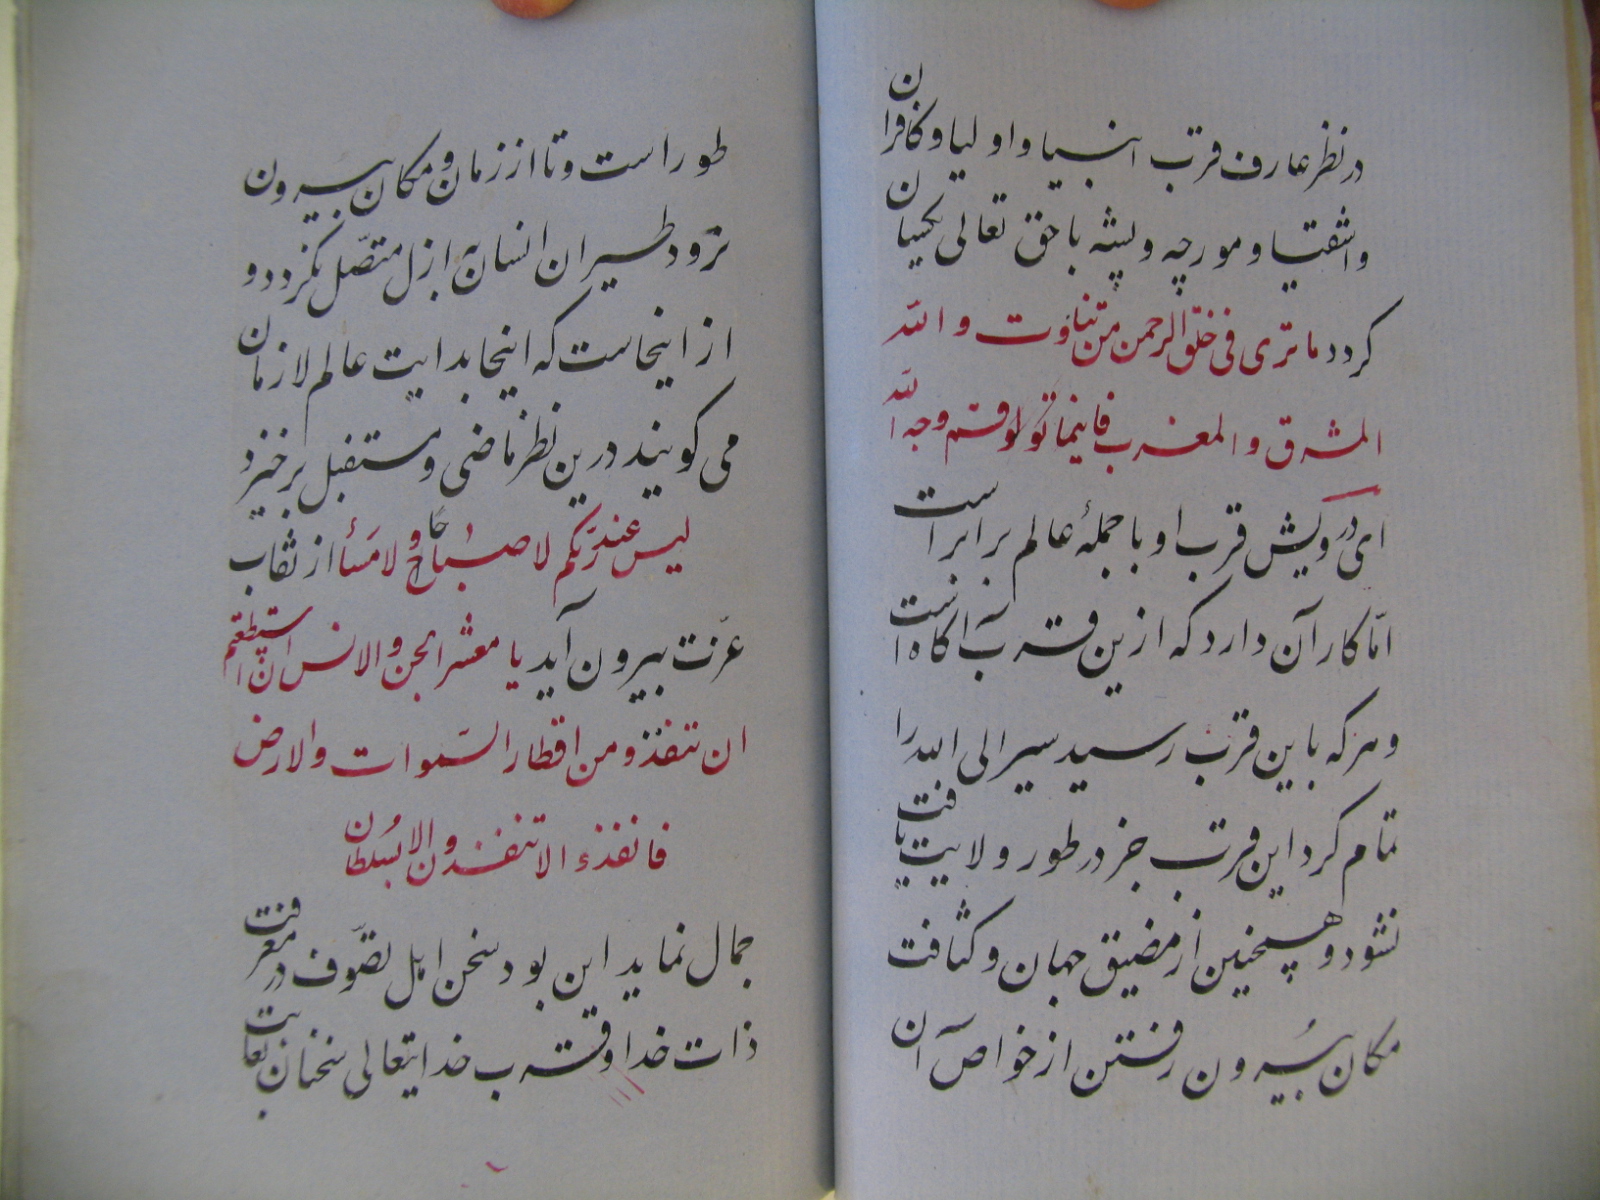 در نظر عارف قرب انبیا و اولیا و کافران
و اشقیا و مورچه و پشه با حق تعالی یکسان
کردد ما تری فی خلق الرحمن من تفاوت و الله
المشرق و المغرب فاینما تولوا فثم وجه الله
ای درویش قرب او با جملهٔ عالم برابر است
امّا کار آن دارد که ازین قرب آکاه است
و هرکه باین قرب رسید سیر الی الله را
تمام کرد این قرب جز در طور ولایت یافت
نشود و همچنین از مضیق جهان و کثافت
مکان بیرون رفتن از خواص آن
طور است و تا از زمان و مکان بیرون
نرود طیران انسان به ازل متصّل نکردد و
از اینجاست که اینجا بدایت عالم لازمان
می کویند درین نظر ماضی و مستقبل برخیزد
لیس عند ربکم لا صباحًا و لا مسأ از نقاب
عزّت بیرون آید یا معشر الجن و الانس ان استطعتم
ان تنفذو من اقطار السّموات والارض
فانفذء الا تنفذون الا بسلطان
جمال نماید این بود سخن اهل تصوّف در معرفت
ذات خدا و قرب خدایتعالی سخنان بغایت